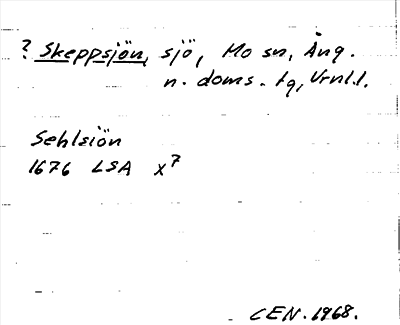 ? Skeppsjön, sjö, Mo sn, Ång.
n. doms. tg, Vrnl.l.
Sehlsiön
1676 LSA x7
CEN. 1968.